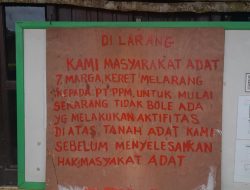 DI LARANG
KAMI MASYARAKAT ADAT
7 MARGA, KERET MELARANG
KEPADA PT.PPM, UNTUK MULAI
SEKARANG TIDAK BOLE ADA
YG MELAKUKAN AKTIFITAS
DIATAS, TANAH ADAT KAMI
SEBELUM MENYELESAIKAN
HAK MASYAKAT ADAT